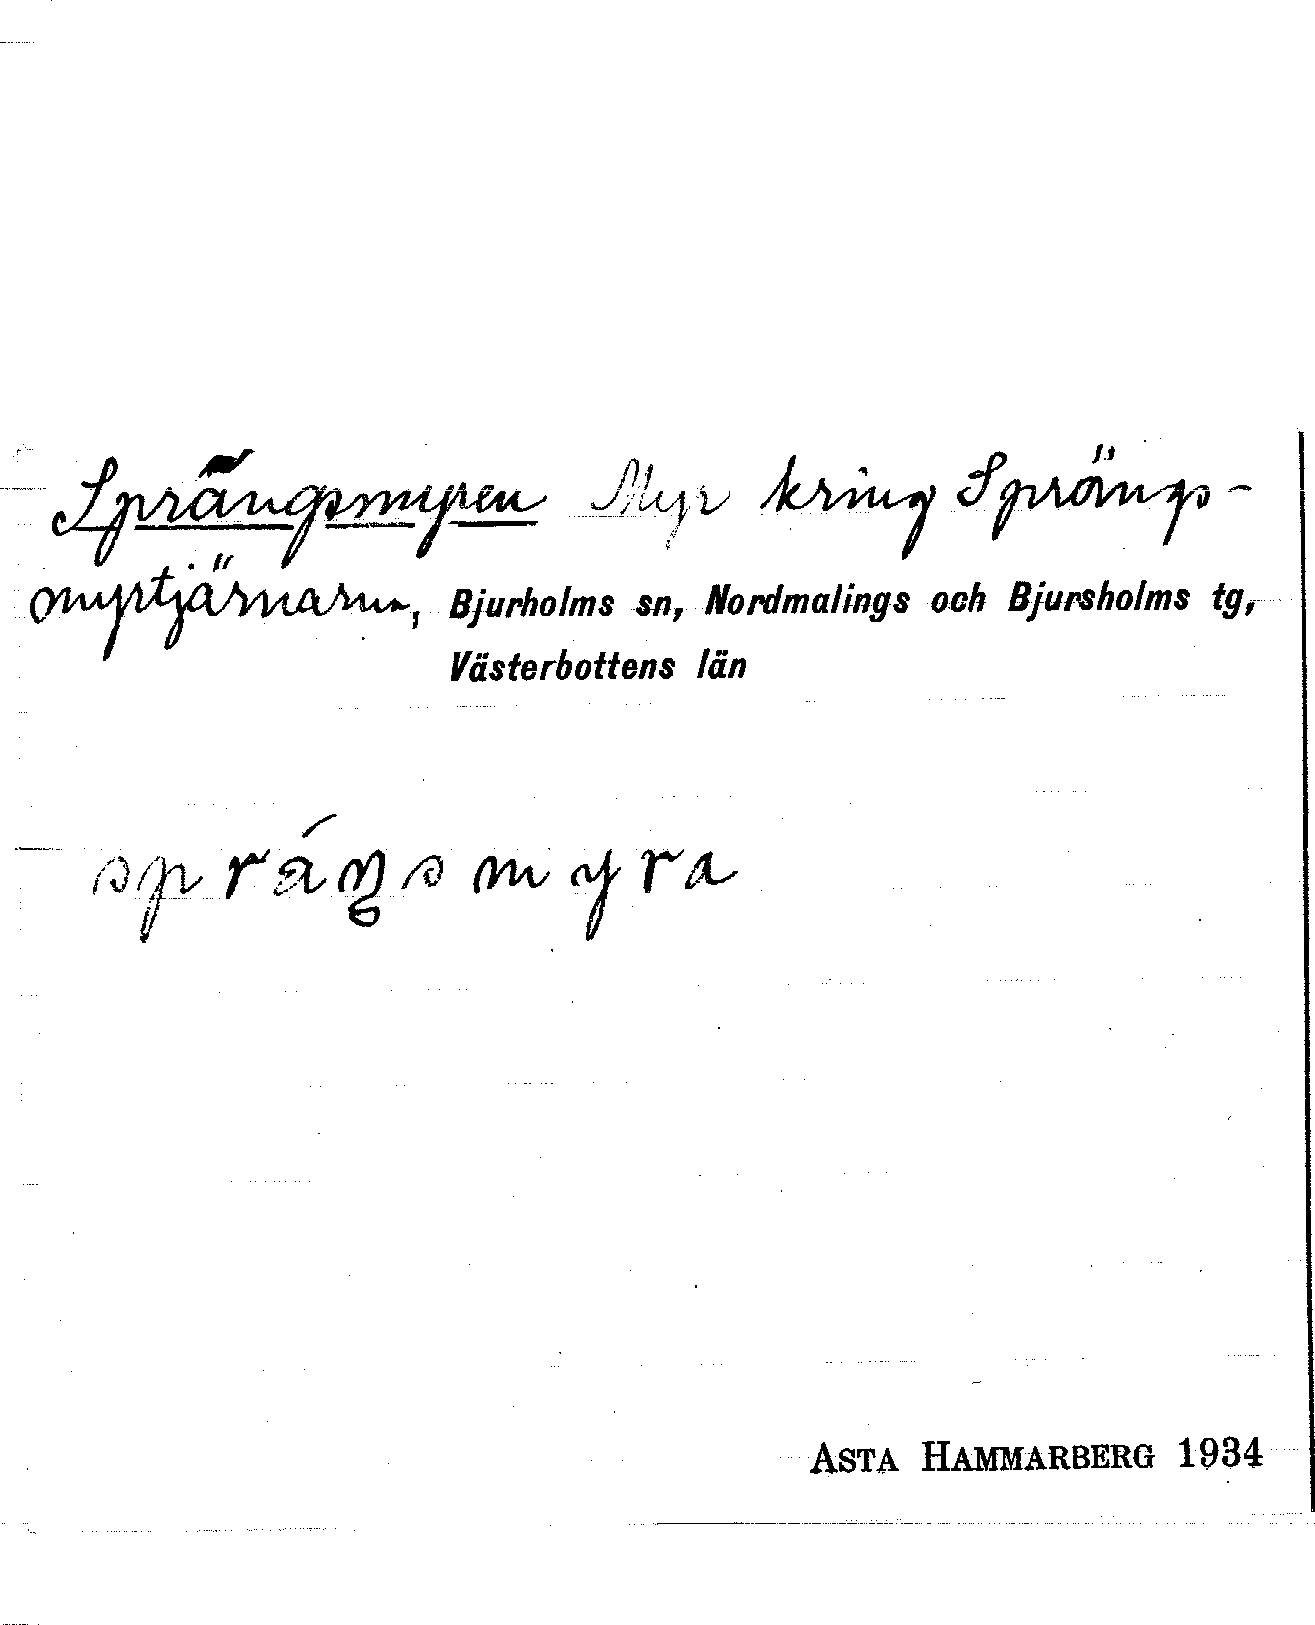 Sprängsmyren Myr kring Sprängs-
myrtjärnarna, Bjurholms sn, Nordmalings och Bjursholms tg,
Västerbottens län
spráŋsmyra
ASTA HAMMARBERG 1934